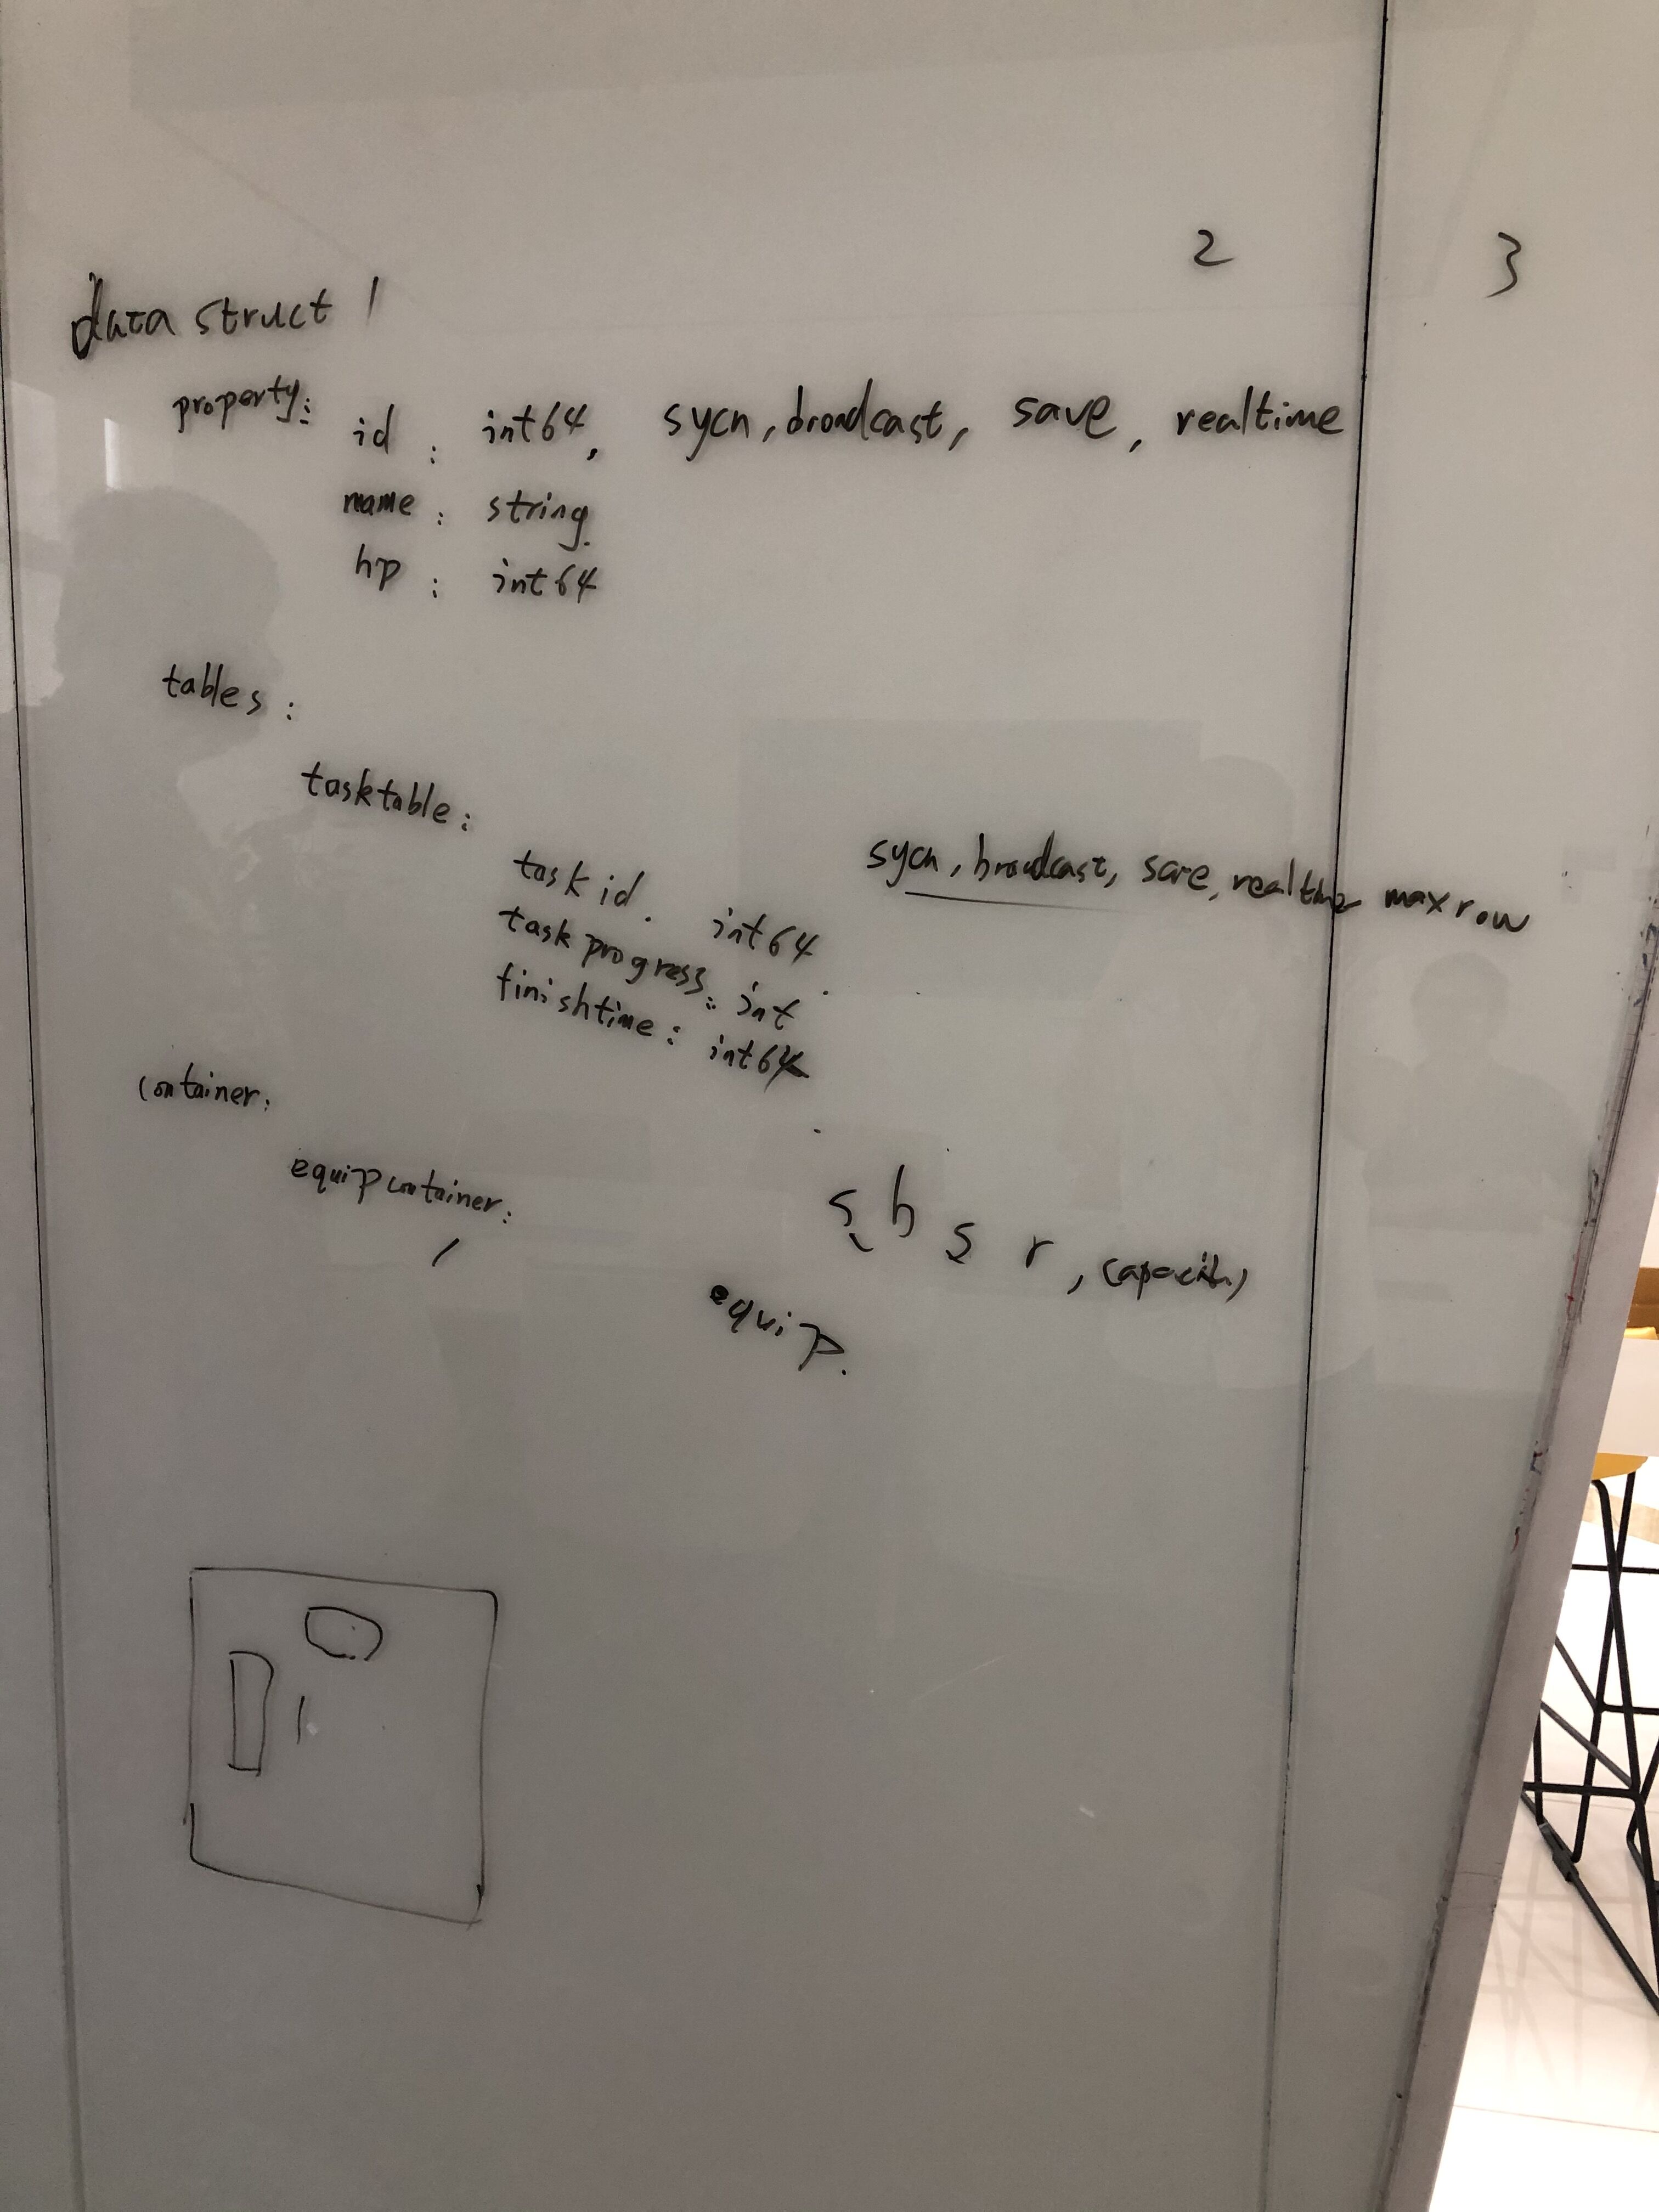 2 3
data struct 1
property: id : int64, sycn, broadcast, save, realtime
name : string
hp : int64
tables :
tasktable :
sycn, broadcast, save, realtime maxrow
task id . int64
task progress : int
finishtime : int64
container :
equipcontainer :
s b s r , capacity
equip.